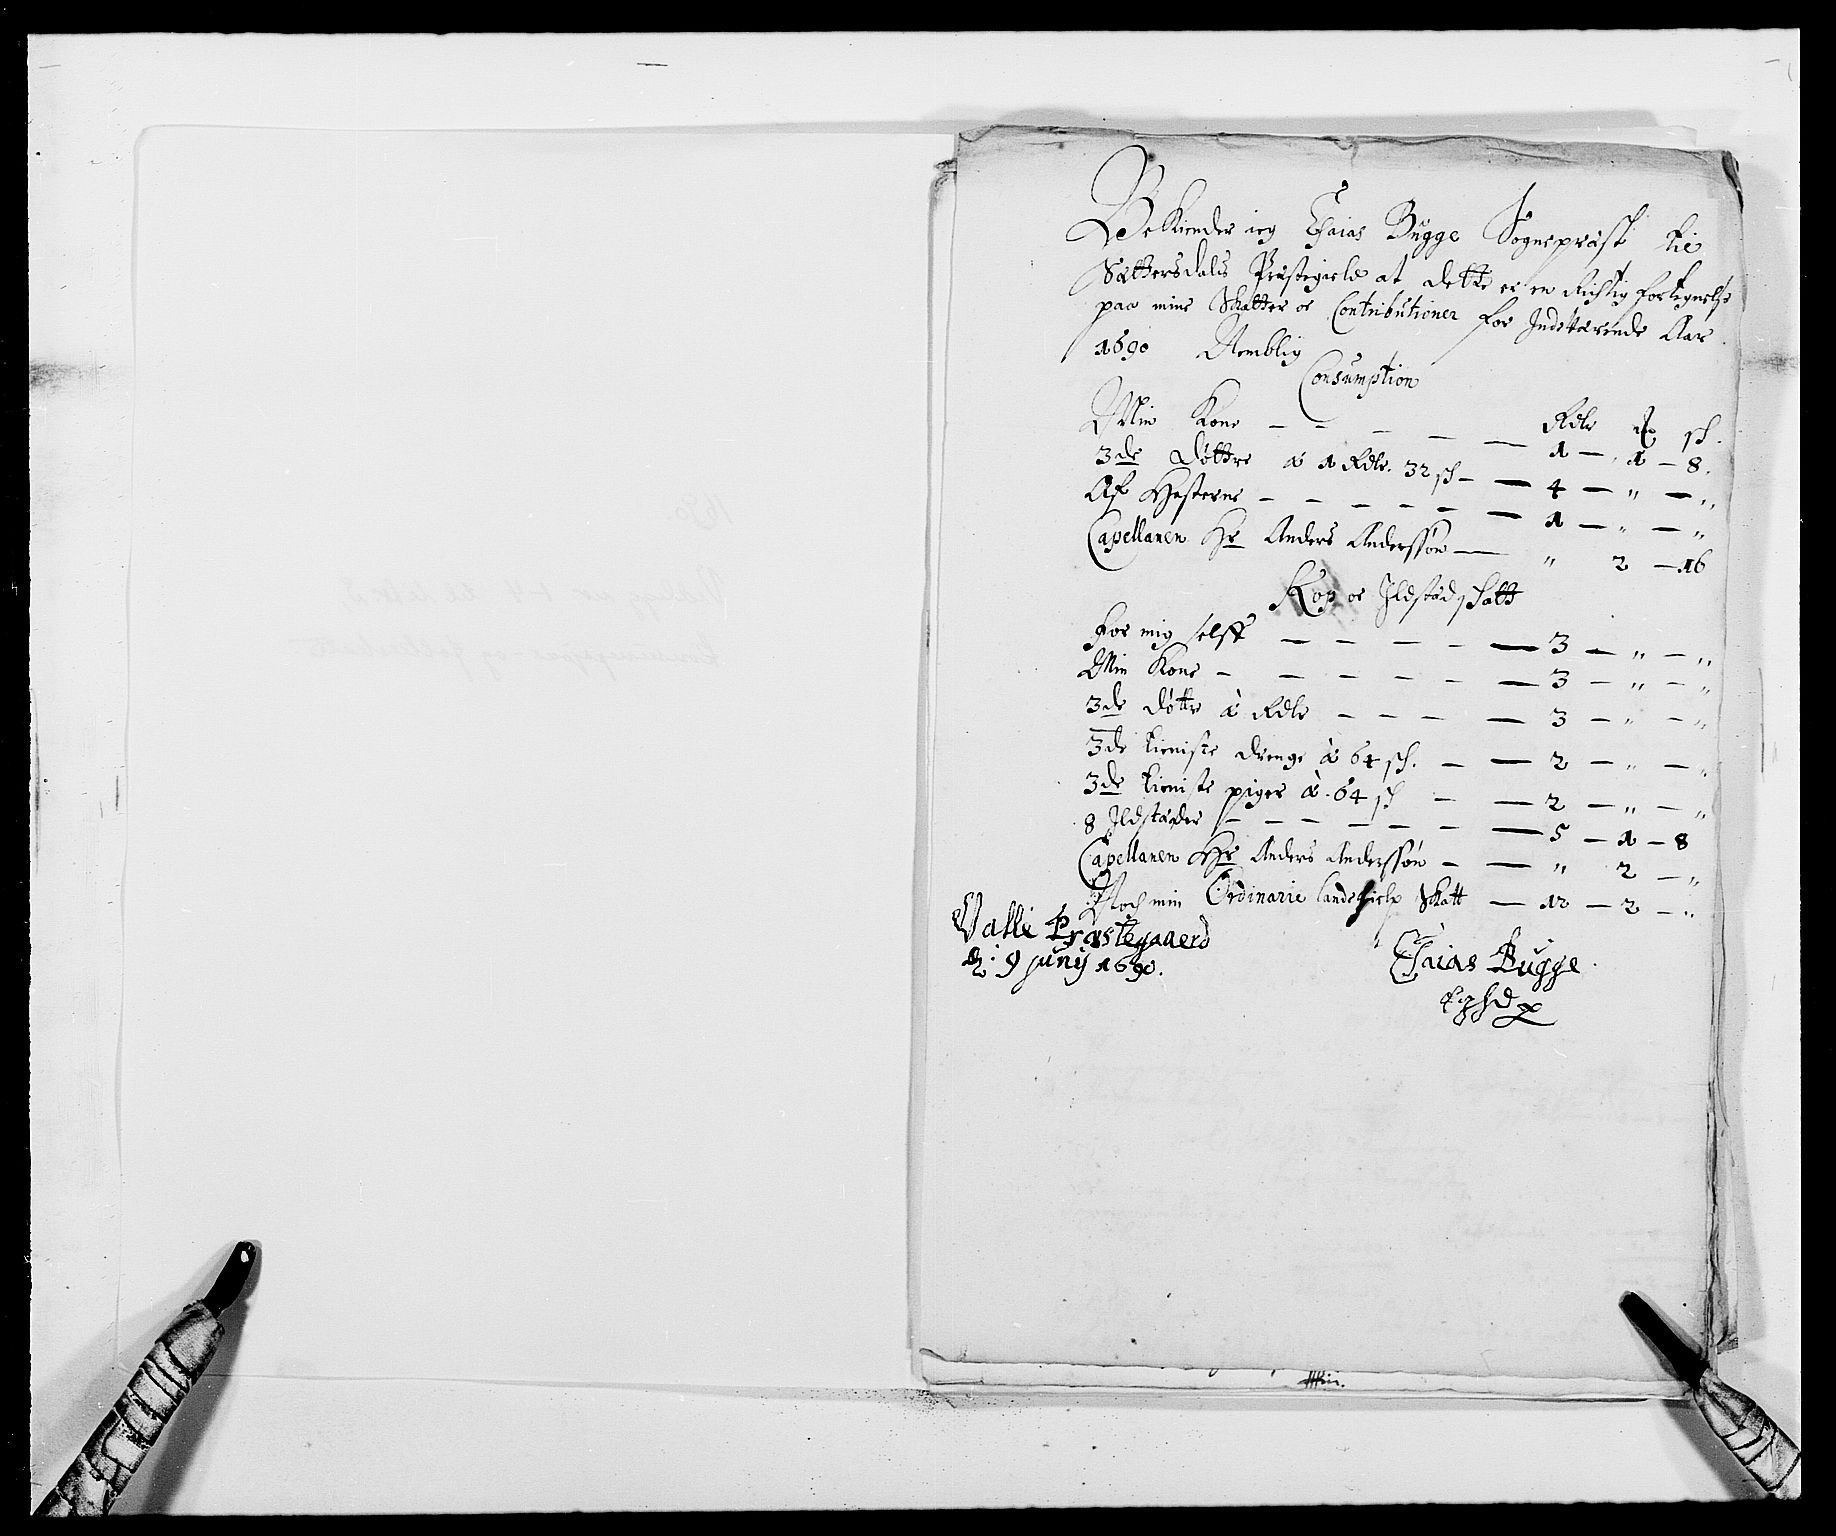 Bekiender ieg Esaias Bugge Sogneprest til
Sættersdals Præstegield at dette er en Richtig fortegnelse
paa mine Skatter oc Contributioner for Indeværende Aar
1690 Nemblig
Consumption
Rdlr ꝶ sk.
Min Kone — — — — — 1 — 1 — 8.
3de døttre a 1 Rdlr. 32 sk — — 4 — " — "
Af Hesterne — — — — — 1 — " — "
Capellanen Hr Anders Anderssøn — " 2 — 16
Kop oc Ildstæd skatt
For mig self — — — — — 3 — " — "
Min Kone — — — — — — 3 — " — "
3de døttre à Rdlr — — — — 3 — " — "
3de tieniste drenge à 64 sk. — — 2 — " — "
3de tieniste piger à 64 sk — — 2 — " — "
8 Ildstæder — — — — — — 5 — 1 — 8
Capellanen Hr Anders Anderssøn — — " 2 — "
Noch min Ordinarie landhielp Skatt — 12 — 2 — "
Valle Præstegaaerd
d: 9 Junij 1690.
Esaias Bugge
1690